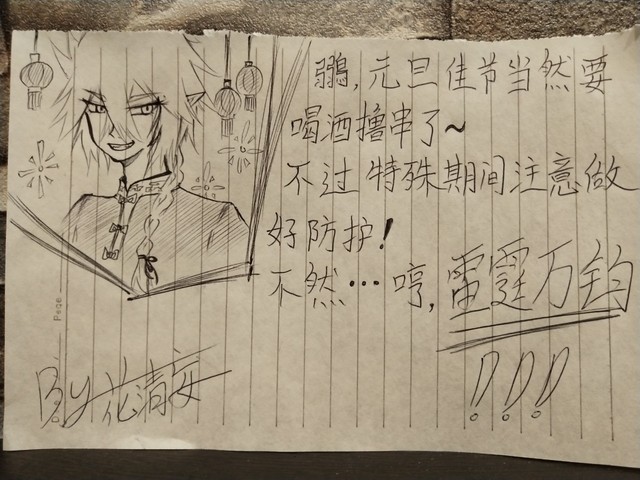 鶸,元旦佳节当然要
喝酒撸串了~
不过特殊期间注意做
好防护!
不然…哼,雷霆万钧
!!!
By花清安
Page